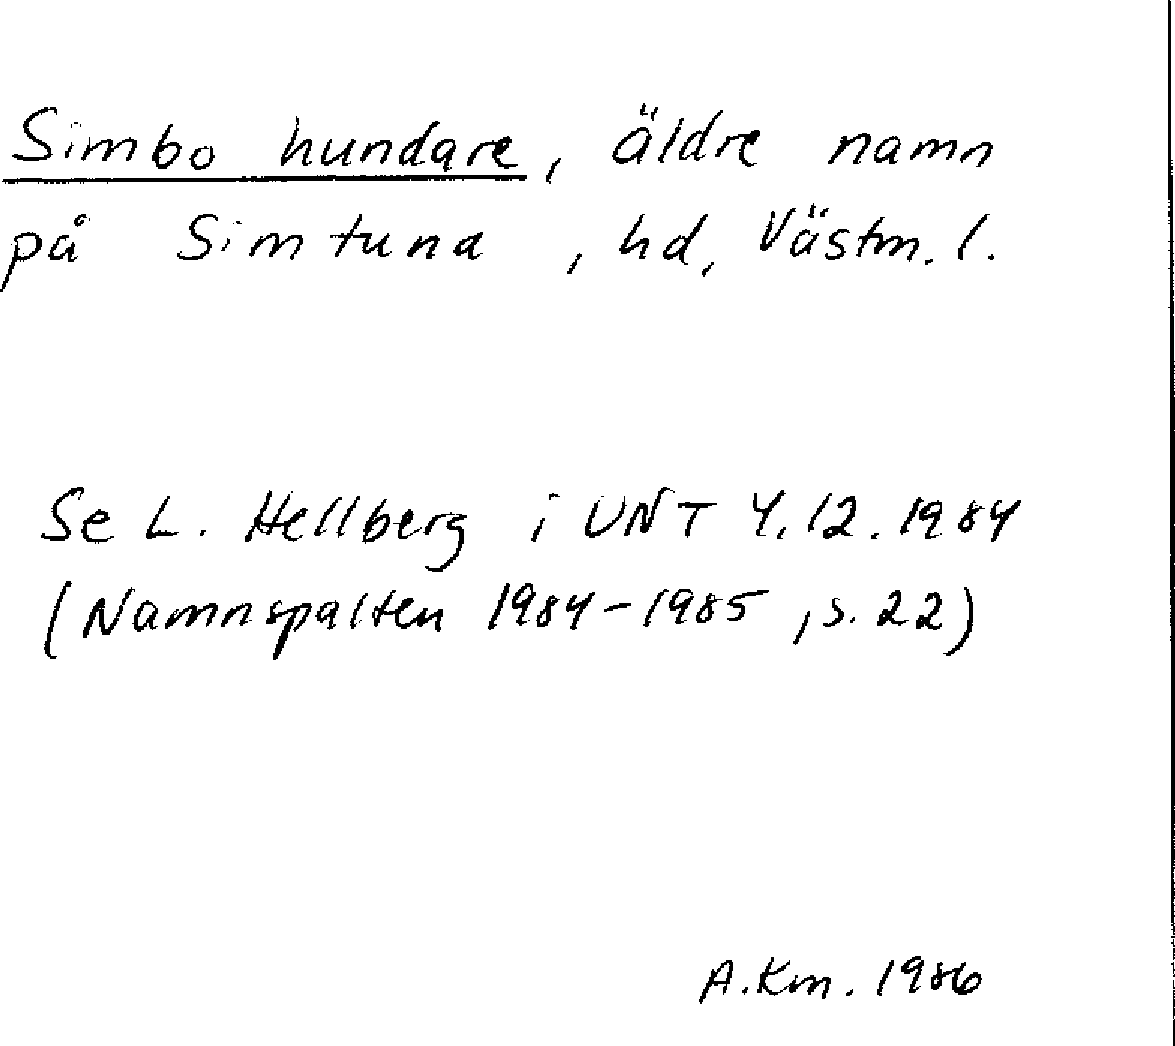 Simbo hundare, äldre namn
på Simtuna, hd, Västm. l.
Se L. Hellberg i UNT 4.12.1984
(Namnspalten 1984-1985, s. 22)
A.Km. 1986